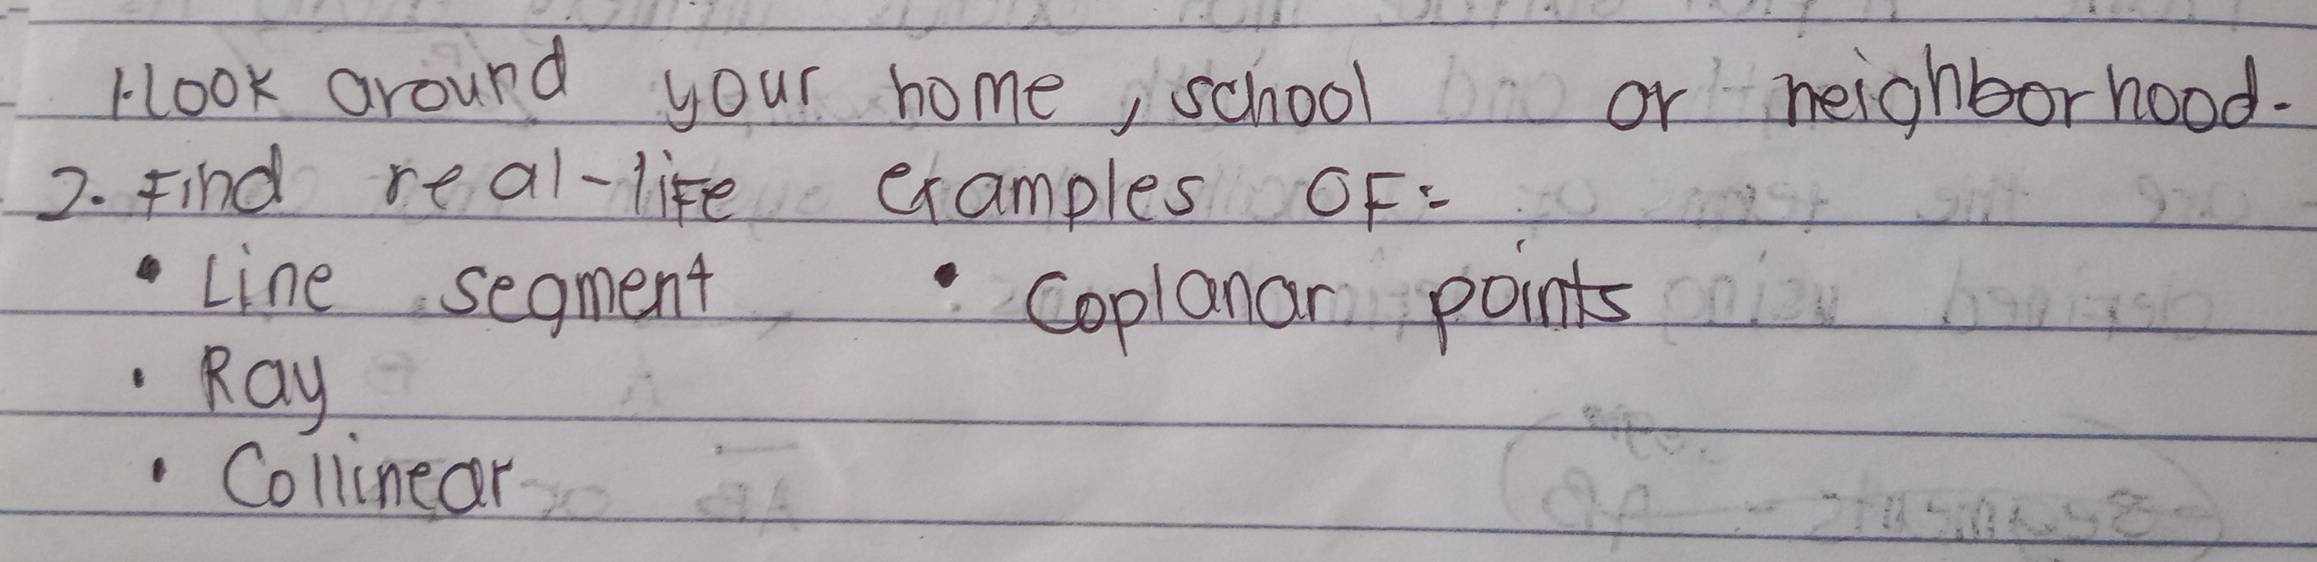 1. look around your home, school or neighborhood.
2. Find real-life examples OF:
• Line segment • Coplanar points
• Ray
• Collinear